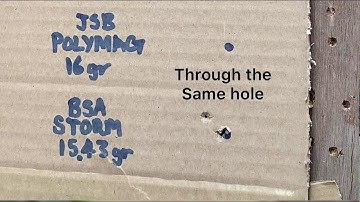 JSB
POLYMAG
16 gr
Through the
Same hole
BSA
STORM
15.43 gr